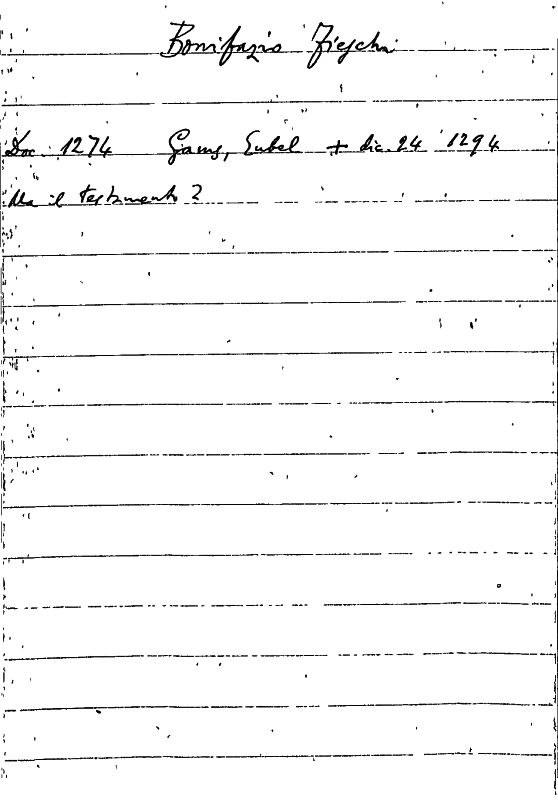 Bonifazio Fieschi
Doc. 1274 Gams, Eubel + dic. 24 1294
Ma il testamento ?